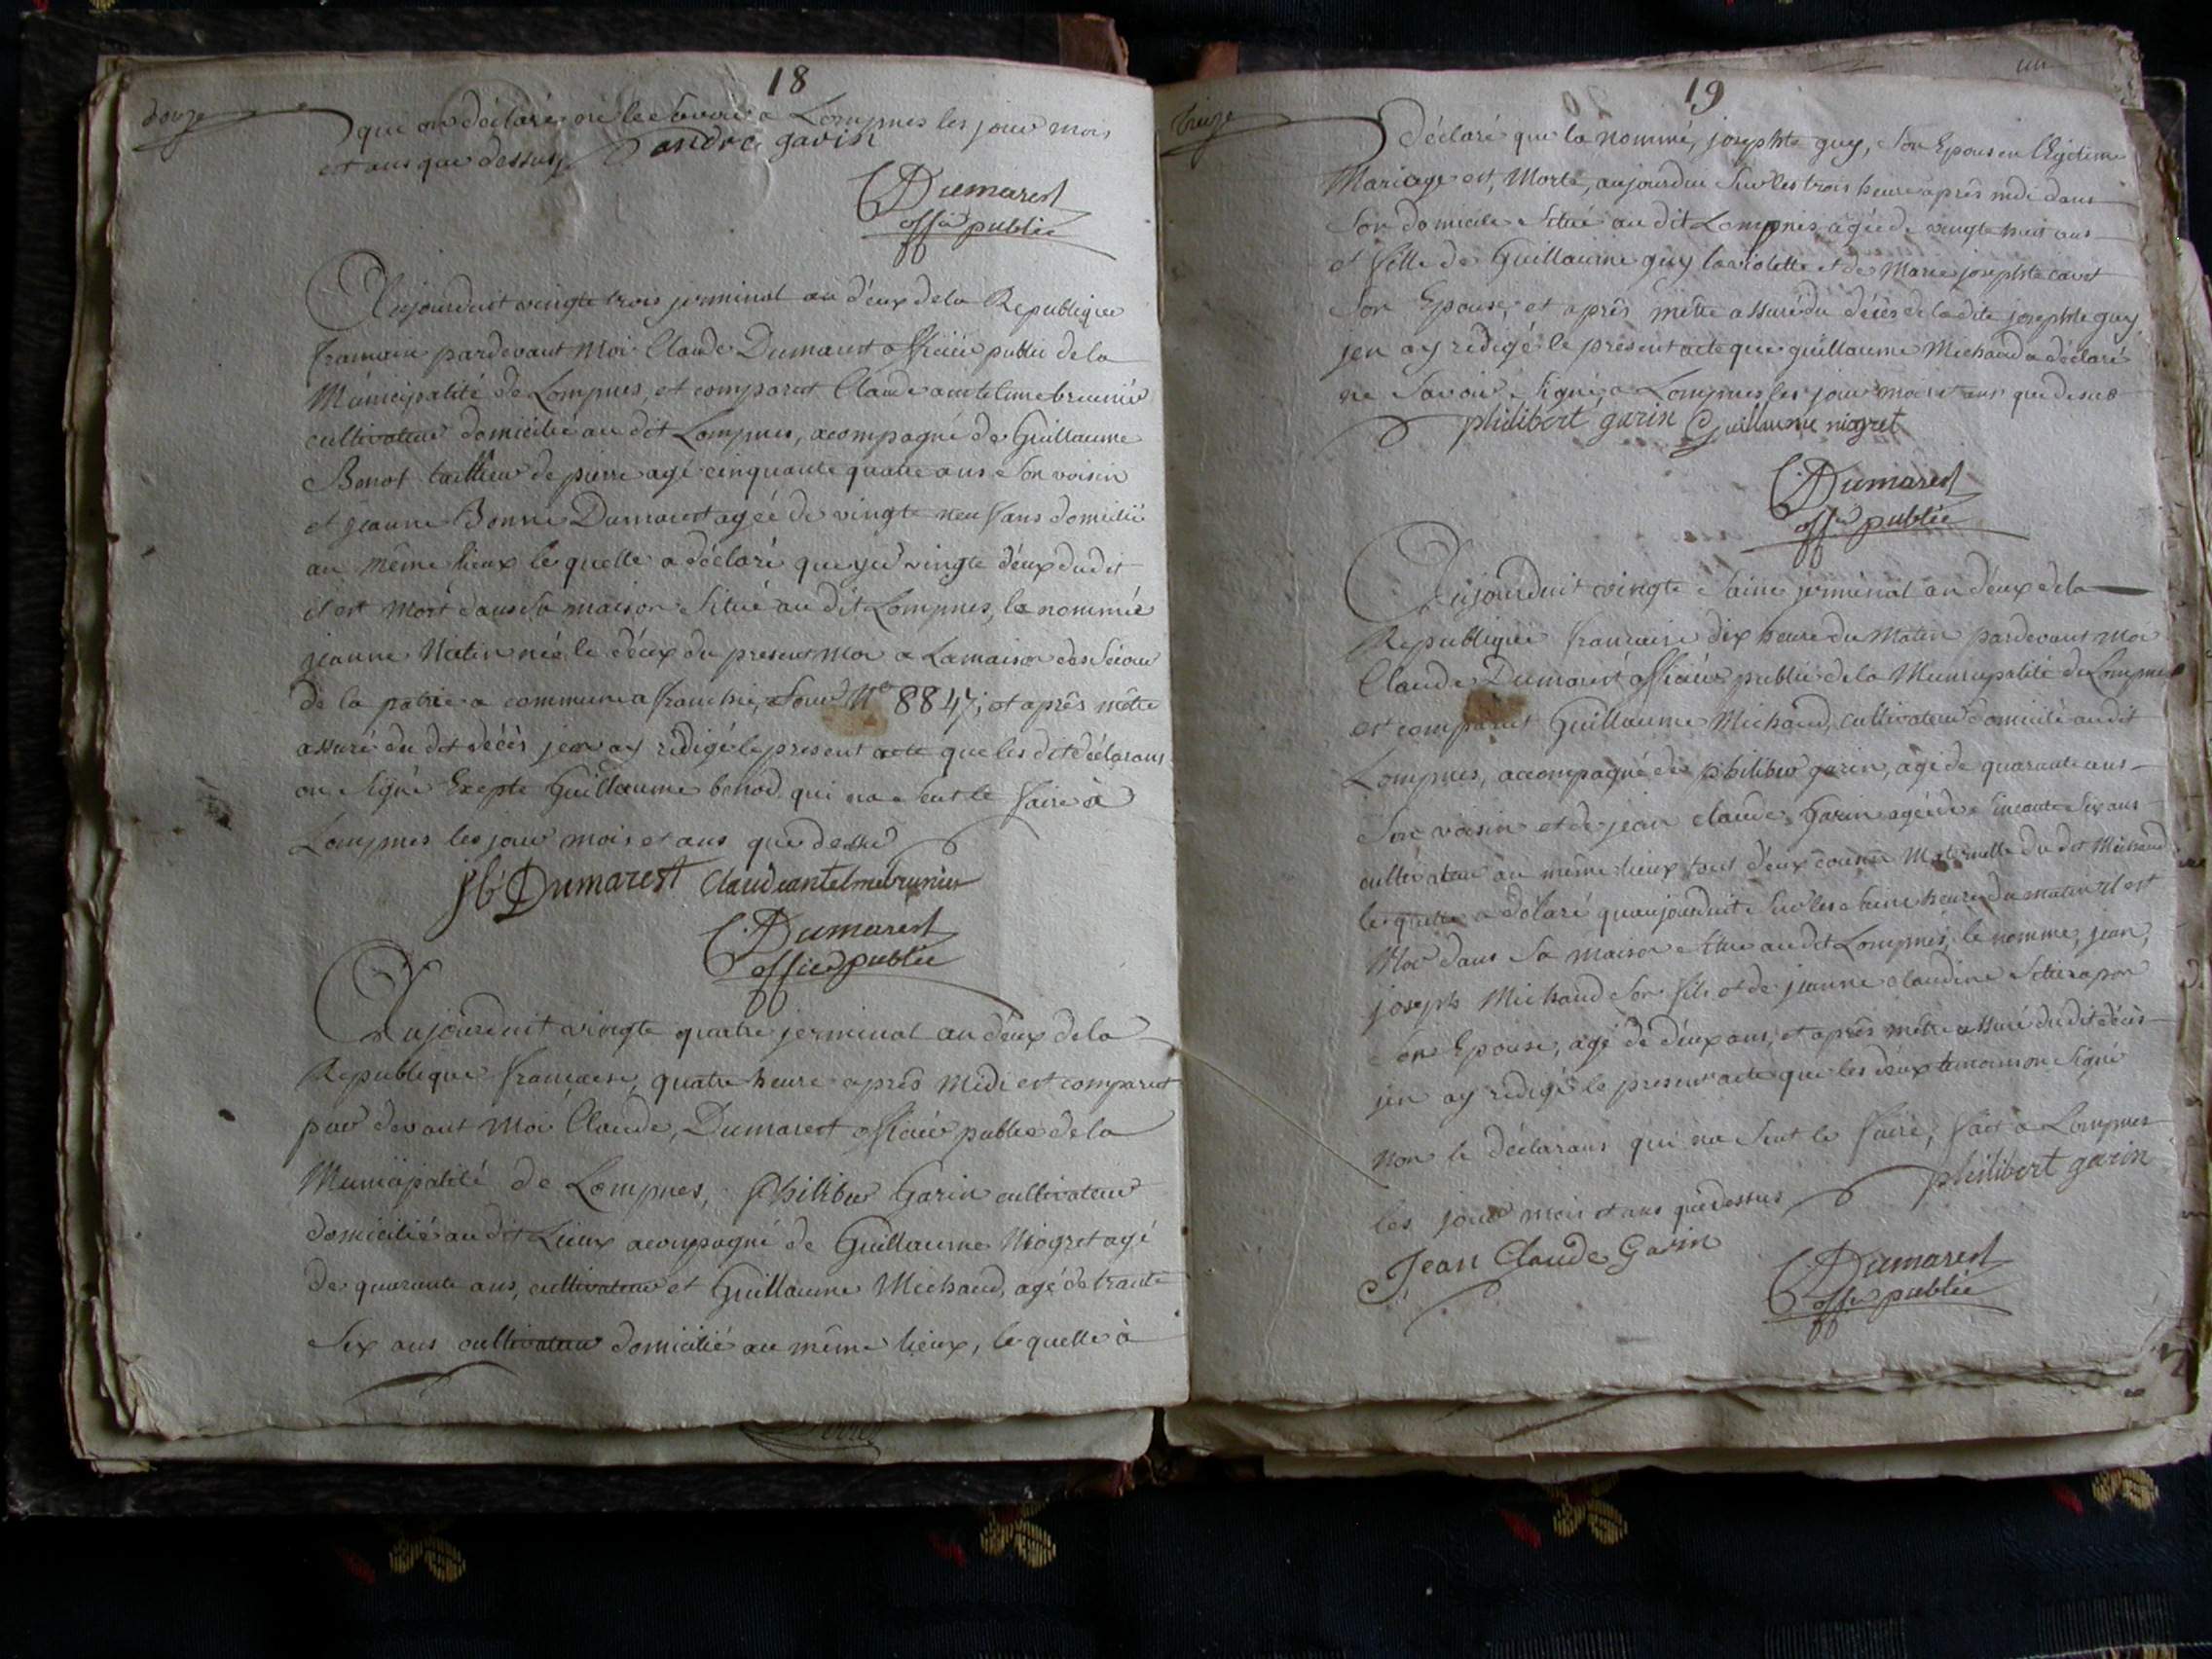 18
douze
que on déclaré ne le savoir a Lompnes les jour mois
et ans que dessus andre gavin
C Dumarest
offier public
Aujourduit vingte trois jerminal an d'eux de la Republique
francaise pardevant Moi Claude Dumarest officier public de la
Municipalité de Lompnes, et comparut Claude antelme brunier
cultivateur domicilié au dit Lompnes, acompagné de Guillaume
Benot taillieur de pierre agé cinquante quatre ans son voisin
et jeanne Bonne Dumarest agée de vingte neuf ans domicilié
au même lieux le quelle a déclaré que yer vingte d'eux dudit
il est mort dans sa maison situé au dit Lompnes, la nommée
jeanne Matin née le d'eux du present moi a La maison des
de la patrie a commune a franchie, sour N° 8847; et après mêtre
assuré du dit décès jean ay rédigé le present acte que les dit déclarans
on signé Exepte Guillaume benod qui na seut le faire à
Lompnes les jour mois et ans que dessu
jb Dumarest Claude antelme brunier
C Dumarest
officier public
Aujourduit vingte quatre jerminal an d'eux de la
Republique francaise, quatre heure après Midi est comparut
par devant Moi Claude, Dumarest officier public de la
Municipalité de Lompnes, Philiber Garin cultivateur
domicilié au dit Lieux acompagné de Guillaume Niogret agé
de quarante ans, cultivateur et Guillaume Michaud, agé de trante
Six ans cultivateur domicilié au même lieux, le quelle à
19
treize
déclaré que la nommé, josephte guy, son Epouse en légitime
Mariage est, Morte, aujourdui sur les trois heure après midi dans
son domicile situé au dit Lompnes agée de vingte huit ans
et fille de Guillaume guy laviolette et de Marie josephte
son Epouse, et après mêtre assuré du décès de la dite josephte guy
jen ay rédigé le présent acte que guillaume Michaud a déclaré
ne savoir signé, a Lompnes les jour mois et ans que dessus
philibert garin Guillaume niogret
C Dumarest
offier public
Aujourduit vingte saint jerminal an d'eux de la
Republique francaise dix heure du Matin pardevant Moi
Claude Dumarest officier public de la Municipalité de Lompnes
est comparut Guillaume Michaud, cultivateur domicilié au dit
Lompnes, accompagné de philiber garin, agé de quarante ans
son voisin et de jean claude Garin agée de sincante six ans
cultivateur au même lieux tout d'eux cousin Maternelle du dit Michaud
le quelle a délaré quaujourduit sur les heure du matin il est
Mor dans sa maison situé au dit Lompnes, le nomme, jean,
joseph Michaud son fils et de jeanne claudine
son Epouse, agé de d'eux ans, et après mêtre assuré du dit décès
jen ay rédigé le present acte que les deux temoins on signé
non le déclarans qui na seut le faire, fait a Lompnes
les jour mois et ans que dessus philibert garin
Jean Claude Garin
C Dumarest
offier public